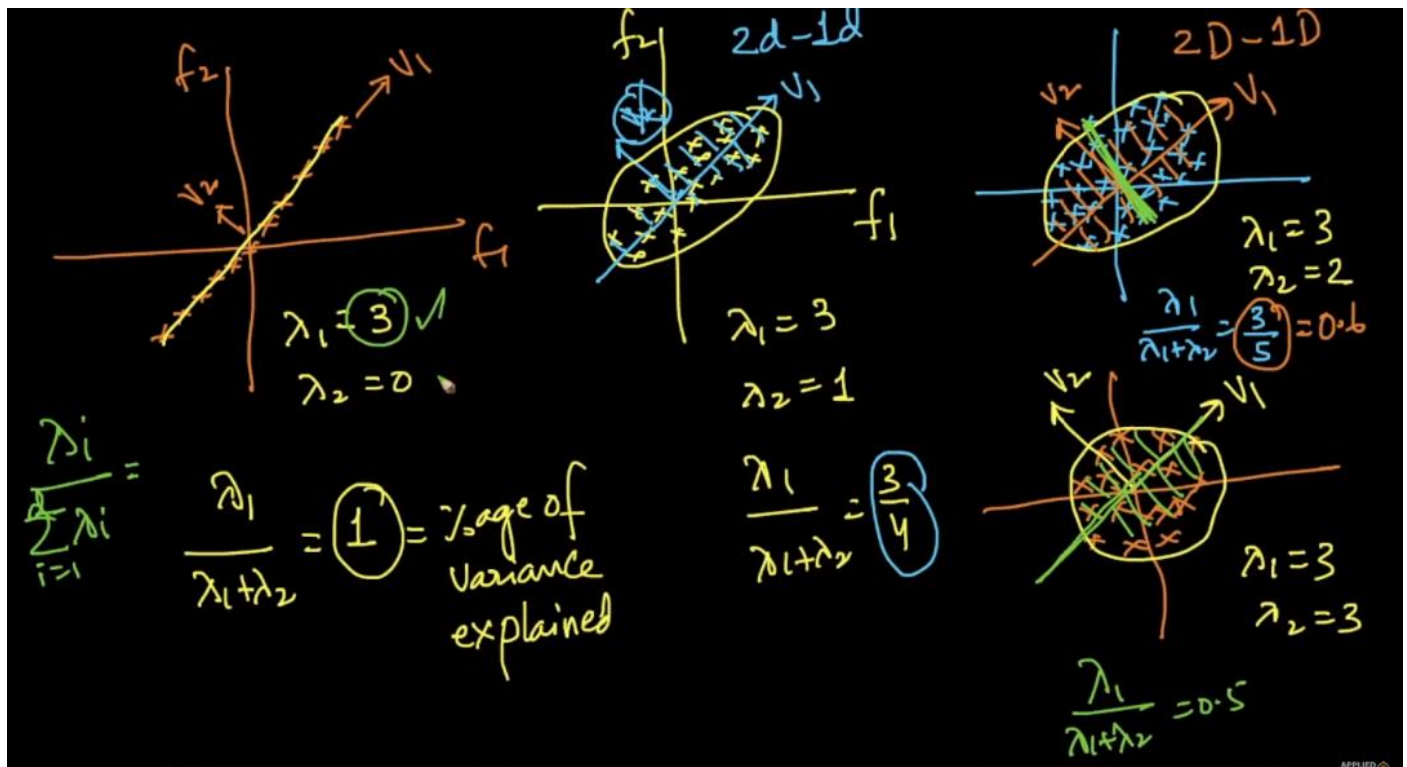 f₂
V₁
V₂
f₁
λ₁ = 3 ✓
λ₂ = 0
λi
d
Σ λi
i=1
=
λ₁
λ₁+λ₂
= 1 = %age of
variance
explained
f₂
2d-1d
V₁
f₁
λ₁ = 3
λ₂ = 1
λ₁
λ₁+λ₂
= 3/4
2D-1D
V₂
V₁
λ₁ = 3
λ₂ = 2
λ₁
λ₁+λ₂
= 3/5 = 0.6
V₂
V₁
λ₁ = 3
λ₂ = 3
λ₁
λ₁+λ₂
= 0.5
APPLIED